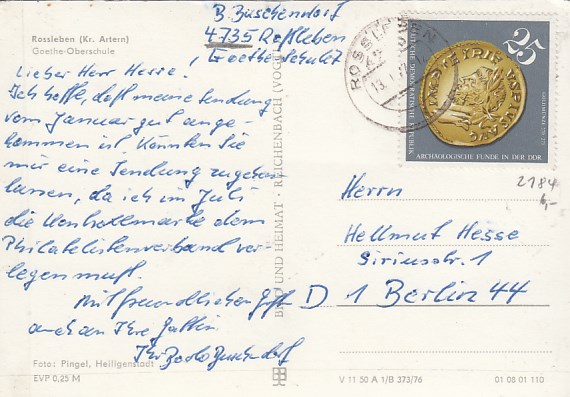 Rossleben (Kr. Artern)
Goethe-Oberschule
B. Buschendorf
4735 Roßleben
Goethe Schulstr
Lieber Herr Hesse!
Ich hoffe, daß meine Sendung
vom Januar gut ange-
kommen ist. Könnten Sie
mir eine Sendung zugehen
lassen, da ich im Juli
die Kontrollmarke dem
Philatelistenverband vor-
legen muß.
Mit freundlichen
auch an Ihre Gattin
Ihr Bodo Buschendorf
Foto: Pingel, Heiligenstadt
EVP 0,25 M
BILD UND HEIMAT · REICHENBACH (VOGTL
ROSSLEBEN
13.
25
DEUTSCHE DEMOKRATISCHE REPUBLIK
ARCHÄOLOGISCHE FUNDE IN DER DDR
2184
6,-
Herrn
Hellmut Hesse
Siriusstr. 1
D 1 Berlin 44
V 11 50 A 1/B 373/76
01 08 01 110